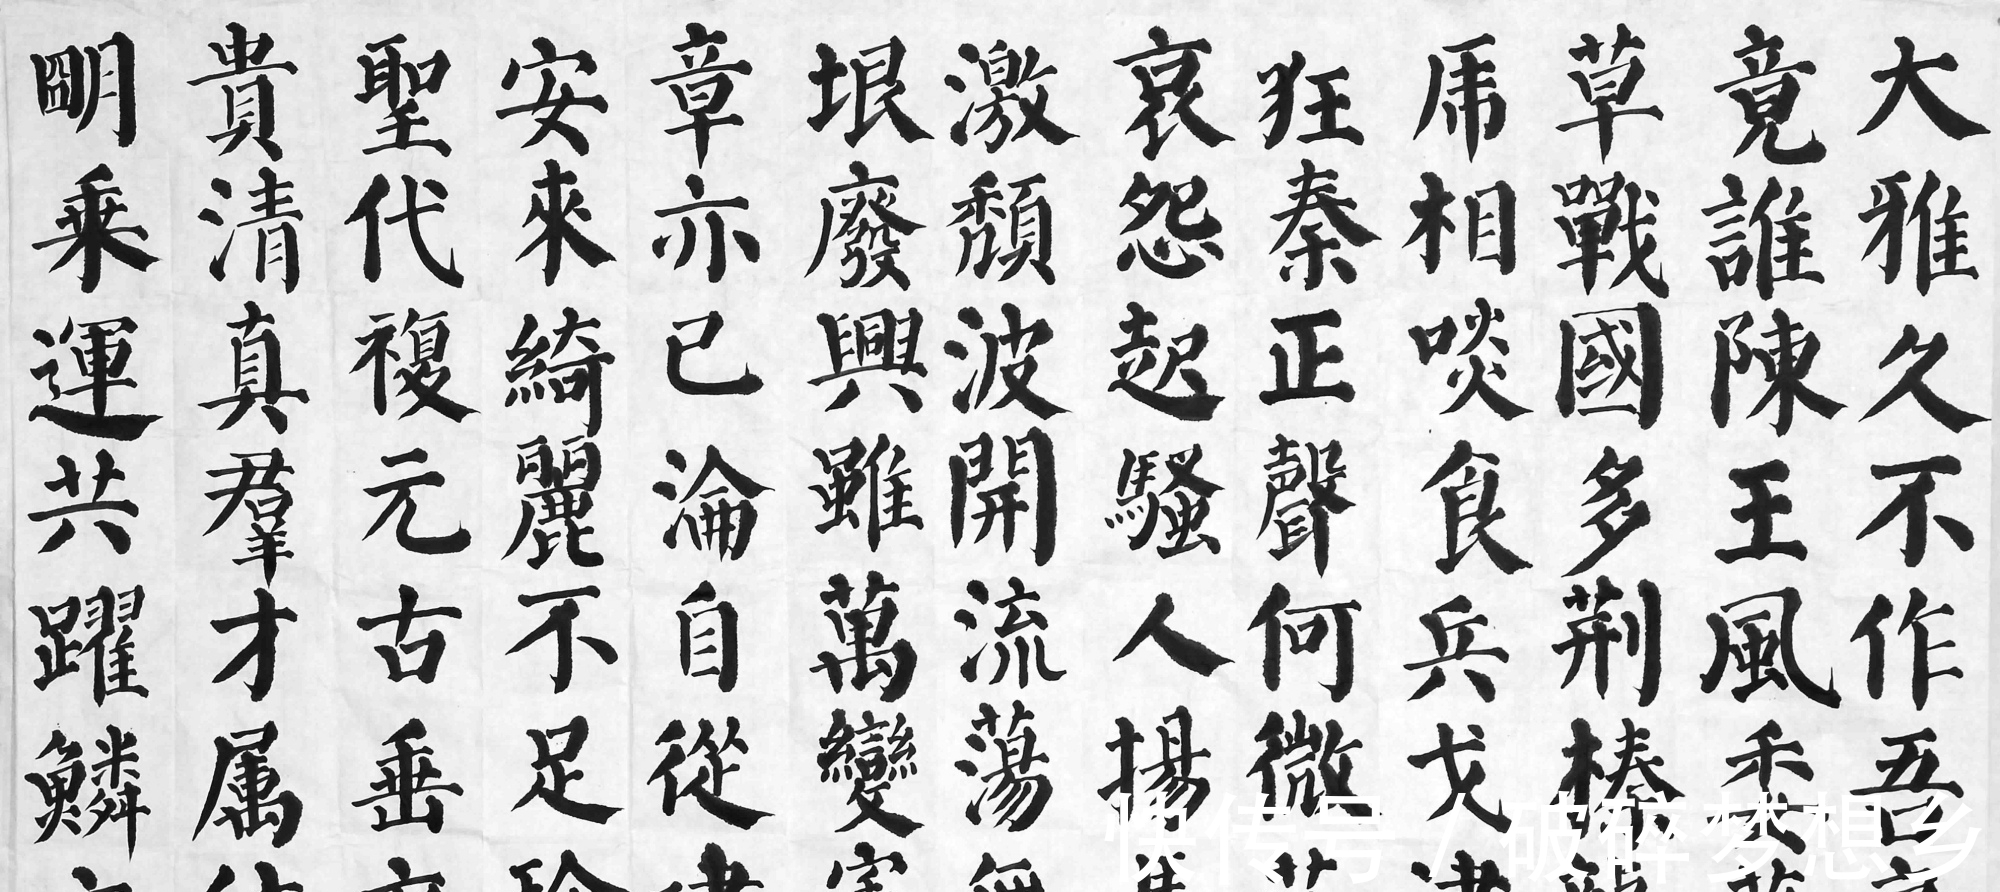 大雅久不作吾
竟誰陳王風委
草戰國多荆榛
虎相啖食兵戈
狂秦正聲何微
哀怨起騷人揚
激頹波開流蕩
垠廢興雖萬變
章亦已淪自從
安來綺麗不足
聖代複元古垂
貴清真羣才属
明乘運共躍鱗
快传号/破碎梦想乡